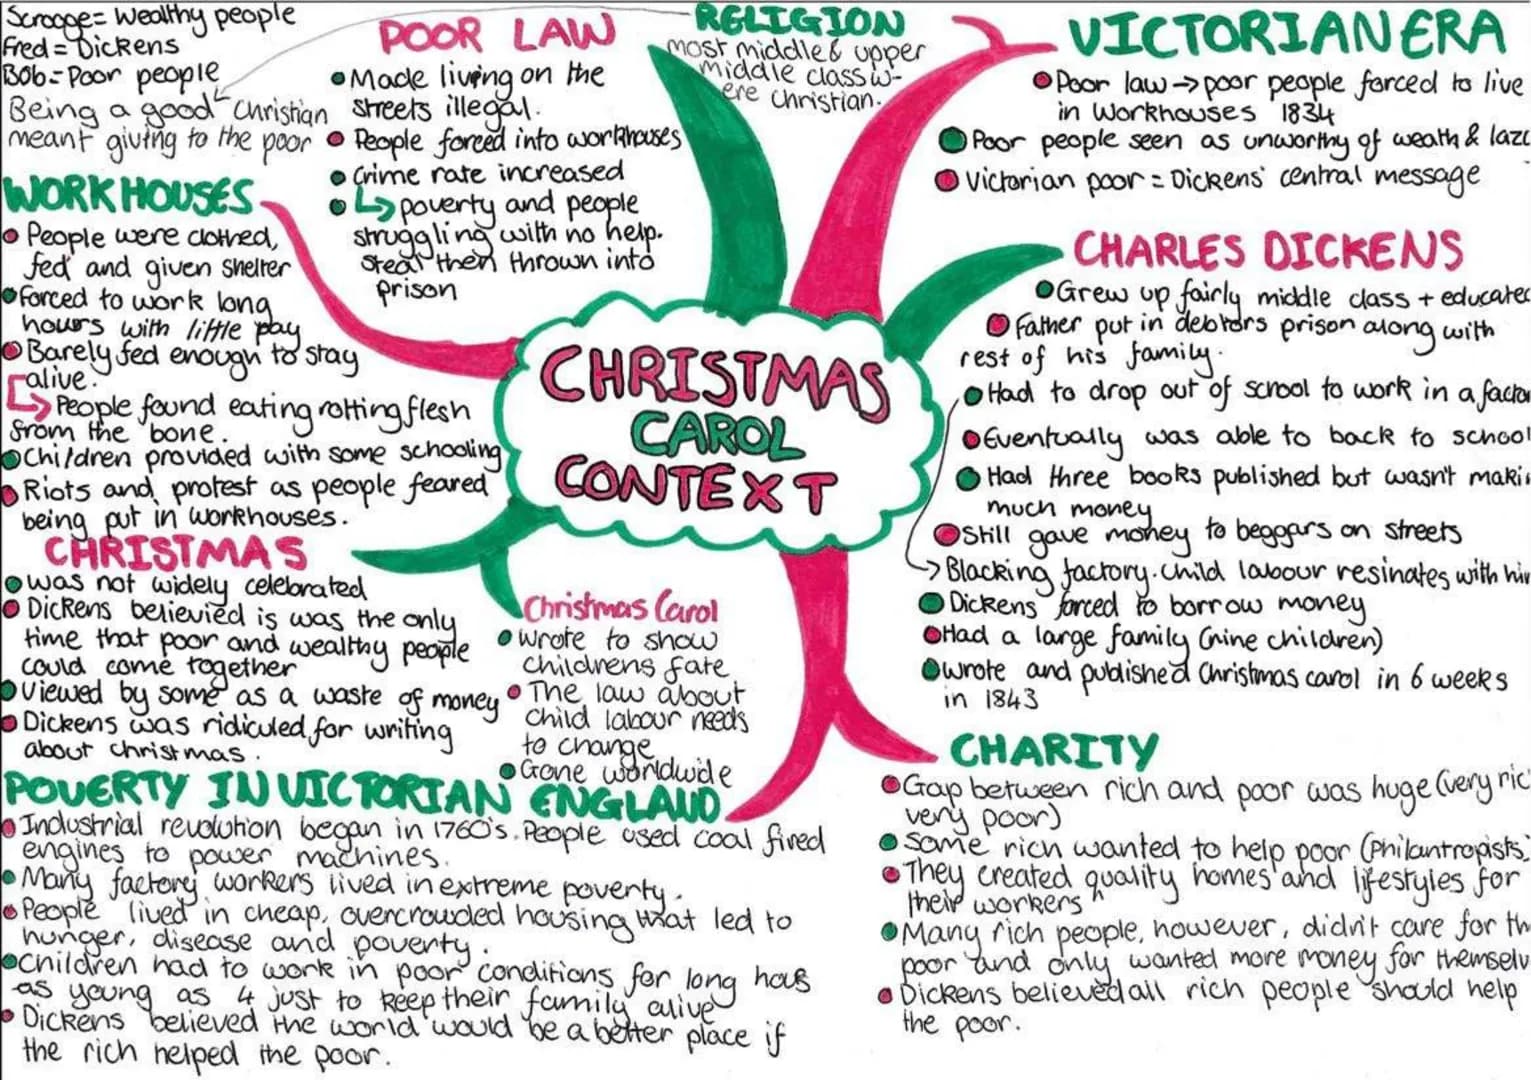 Scrooge= Wealthy people
Fred = Dickens
Bob = Poor people
Being a good Christian
meant giving to the poor
POOR LAW
Made living on the
streets illegal.
People forced into workhouses
Crime rate increased
↳ poverty and people
struggling with no help.
steal then thrown into
prison
RELIGION
most middle & upper
middle class w-
ere Christian.
VICTORIAN ERA
Poor law → poor people forced to live
in Workhouses 1834
Poor people seen as unworthy of wealth &
Victorian poor = Dickens' central message
WORKHOUSES
People were clothed,
fed and given shelter
forced to work long
hours with little pay
Barely fed enough to stay
alive.
↳ People found eating rotting flesh
from the bone.
Children provided with some schooling
Riots and protest as people feared
being put in workhouses.
CHRISTMAS CAROL CONTEXT
CHARLES DICKENS
Grew up fairly middle class + educated
Father put in debtors prison along with
rest of his family.
Had to drop out of school to work in a factor
Eventually was able to back to school
Had three books published but wasn't makin
much money
Still gave money to beggars on streets
→ Blacking factory. Child labour resinates with him
Dickens forced to borrow money
Had a large family (nine children)
wrote and published Christmas carol in 6 weeks
in 1843
CHRISTMAS
was not widely celebrated
Dickens believied is was the only
time that poor and wealthy people
could come together
Viewed by some as a waste of money
Dickens was ridiculed for writing
about christmas.
Christmas Carol
Wrote to show
childrens fate
The law about
child labour needs
to change
Gone worldwide
POVERTY IN VICTORIAN ENGLAND
Industrial revolution began in 1760's. People used coal fired
engines to power machines.
Many factory workers lived in extreme poverty.
People lived in cheap, overcrowded housing that led to
hunger, disease and poverty.
Children had to work in poor conditions for long hous
as young as 4 just to keep their family alive
Dickens believed the world would be a better place if
the rich helped the poor.
CHARITY
Gap between rich and poor was huge (very ric
very poor)
Some rich wanted to help poor (Philantropists)
They created quality homes and lifestyles for
their workers
Many rich people, however, didn't care for th
poor and only wanted more money for themselv
Dickens believed all rich people should help
the poor.